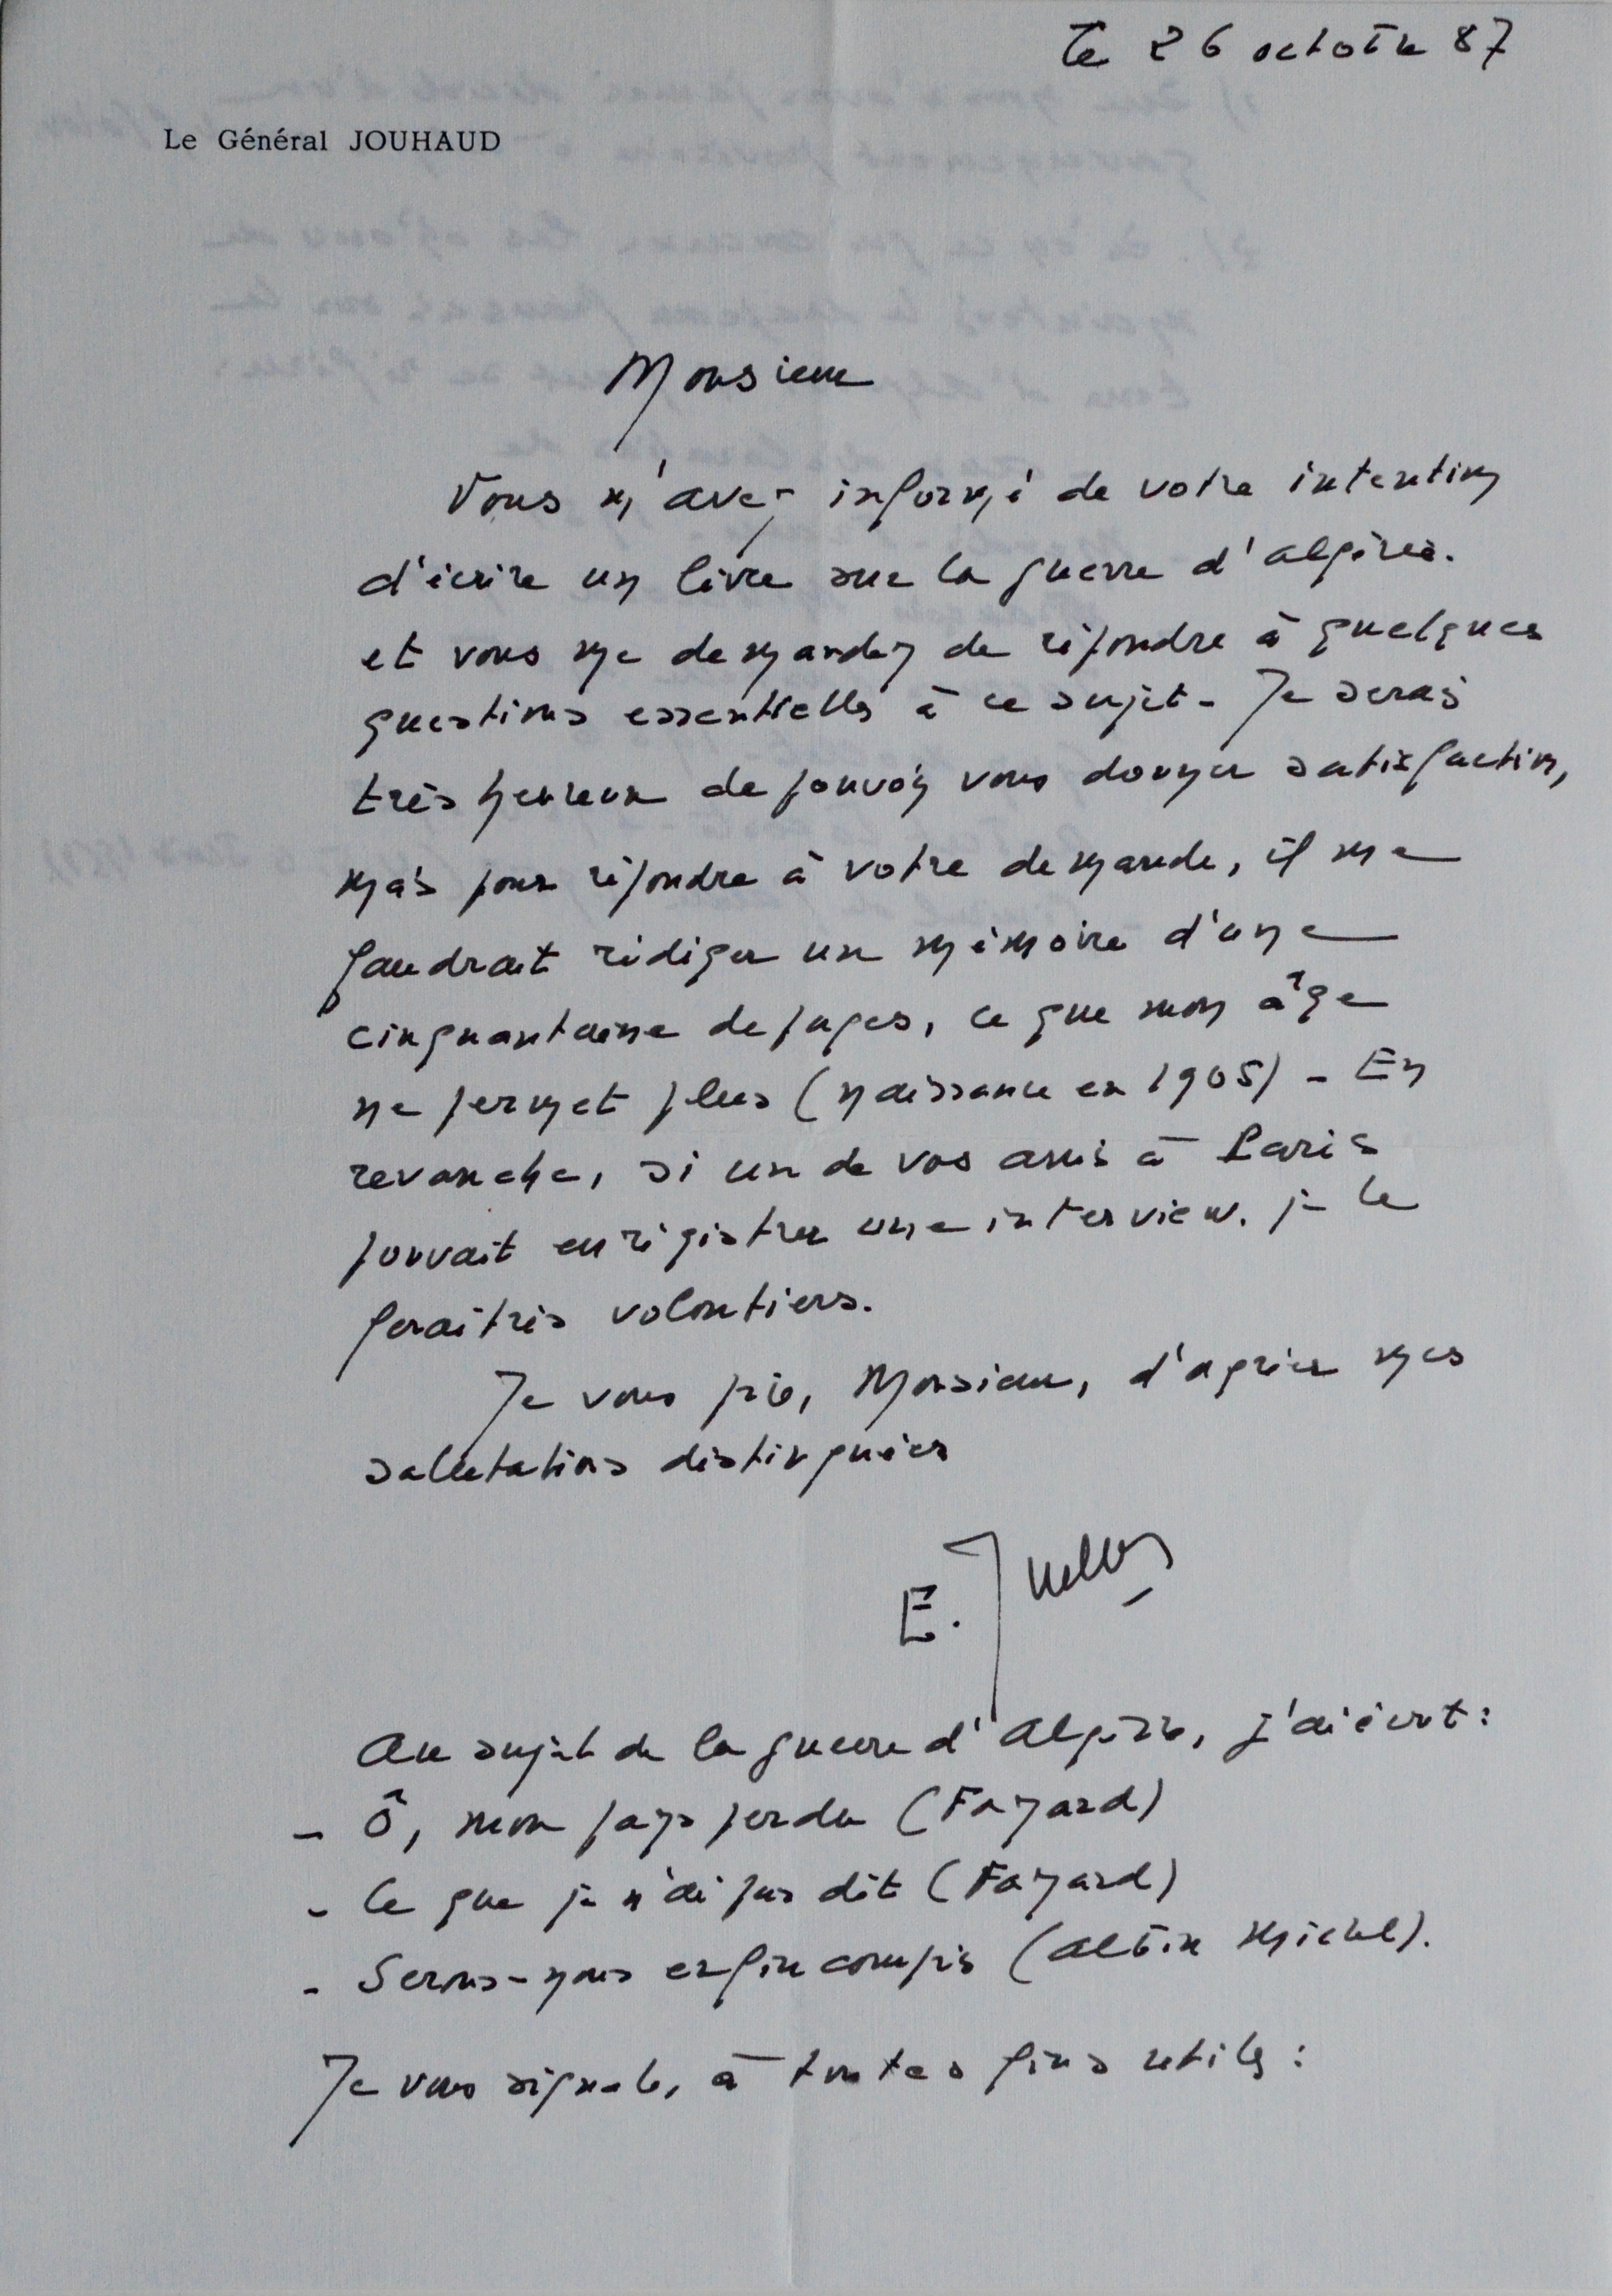 Le 26 octobre 87
Le Général JOUHAUD
Monsieur
Vous m'avez informé de votre intention
d'écrire un livre sur la guerre d'Algérie.
et vous me demandez de répondre à quelques
questions essentielles à ce sujet - Je serais
très heureux de pouvoir vous donner satisfaction,
mais pour répondre à votre demande, il me
faudrait rédiger un mémoire d'une
cinquantaine de pages, ce que mon âge
ne permet plus (naissance en 1905) - En
revanche, si un de vos amis à Paris
pouvait enrégistrer une interview. je le
ferai très volontiers.
Je vous prie, Monsieur, d'agréer mes
salutations distinguées
E. Jouhaud
Au sujet de la guerre d'Algérie, j'ai écrit :
- Ô, mon pays perdu (Fayard)
- Ce que je n'ai pas dit (Fayard)
- Serons-nous enfin compris (Albin Michel).
Je vous signale, à toutes fins utiles :